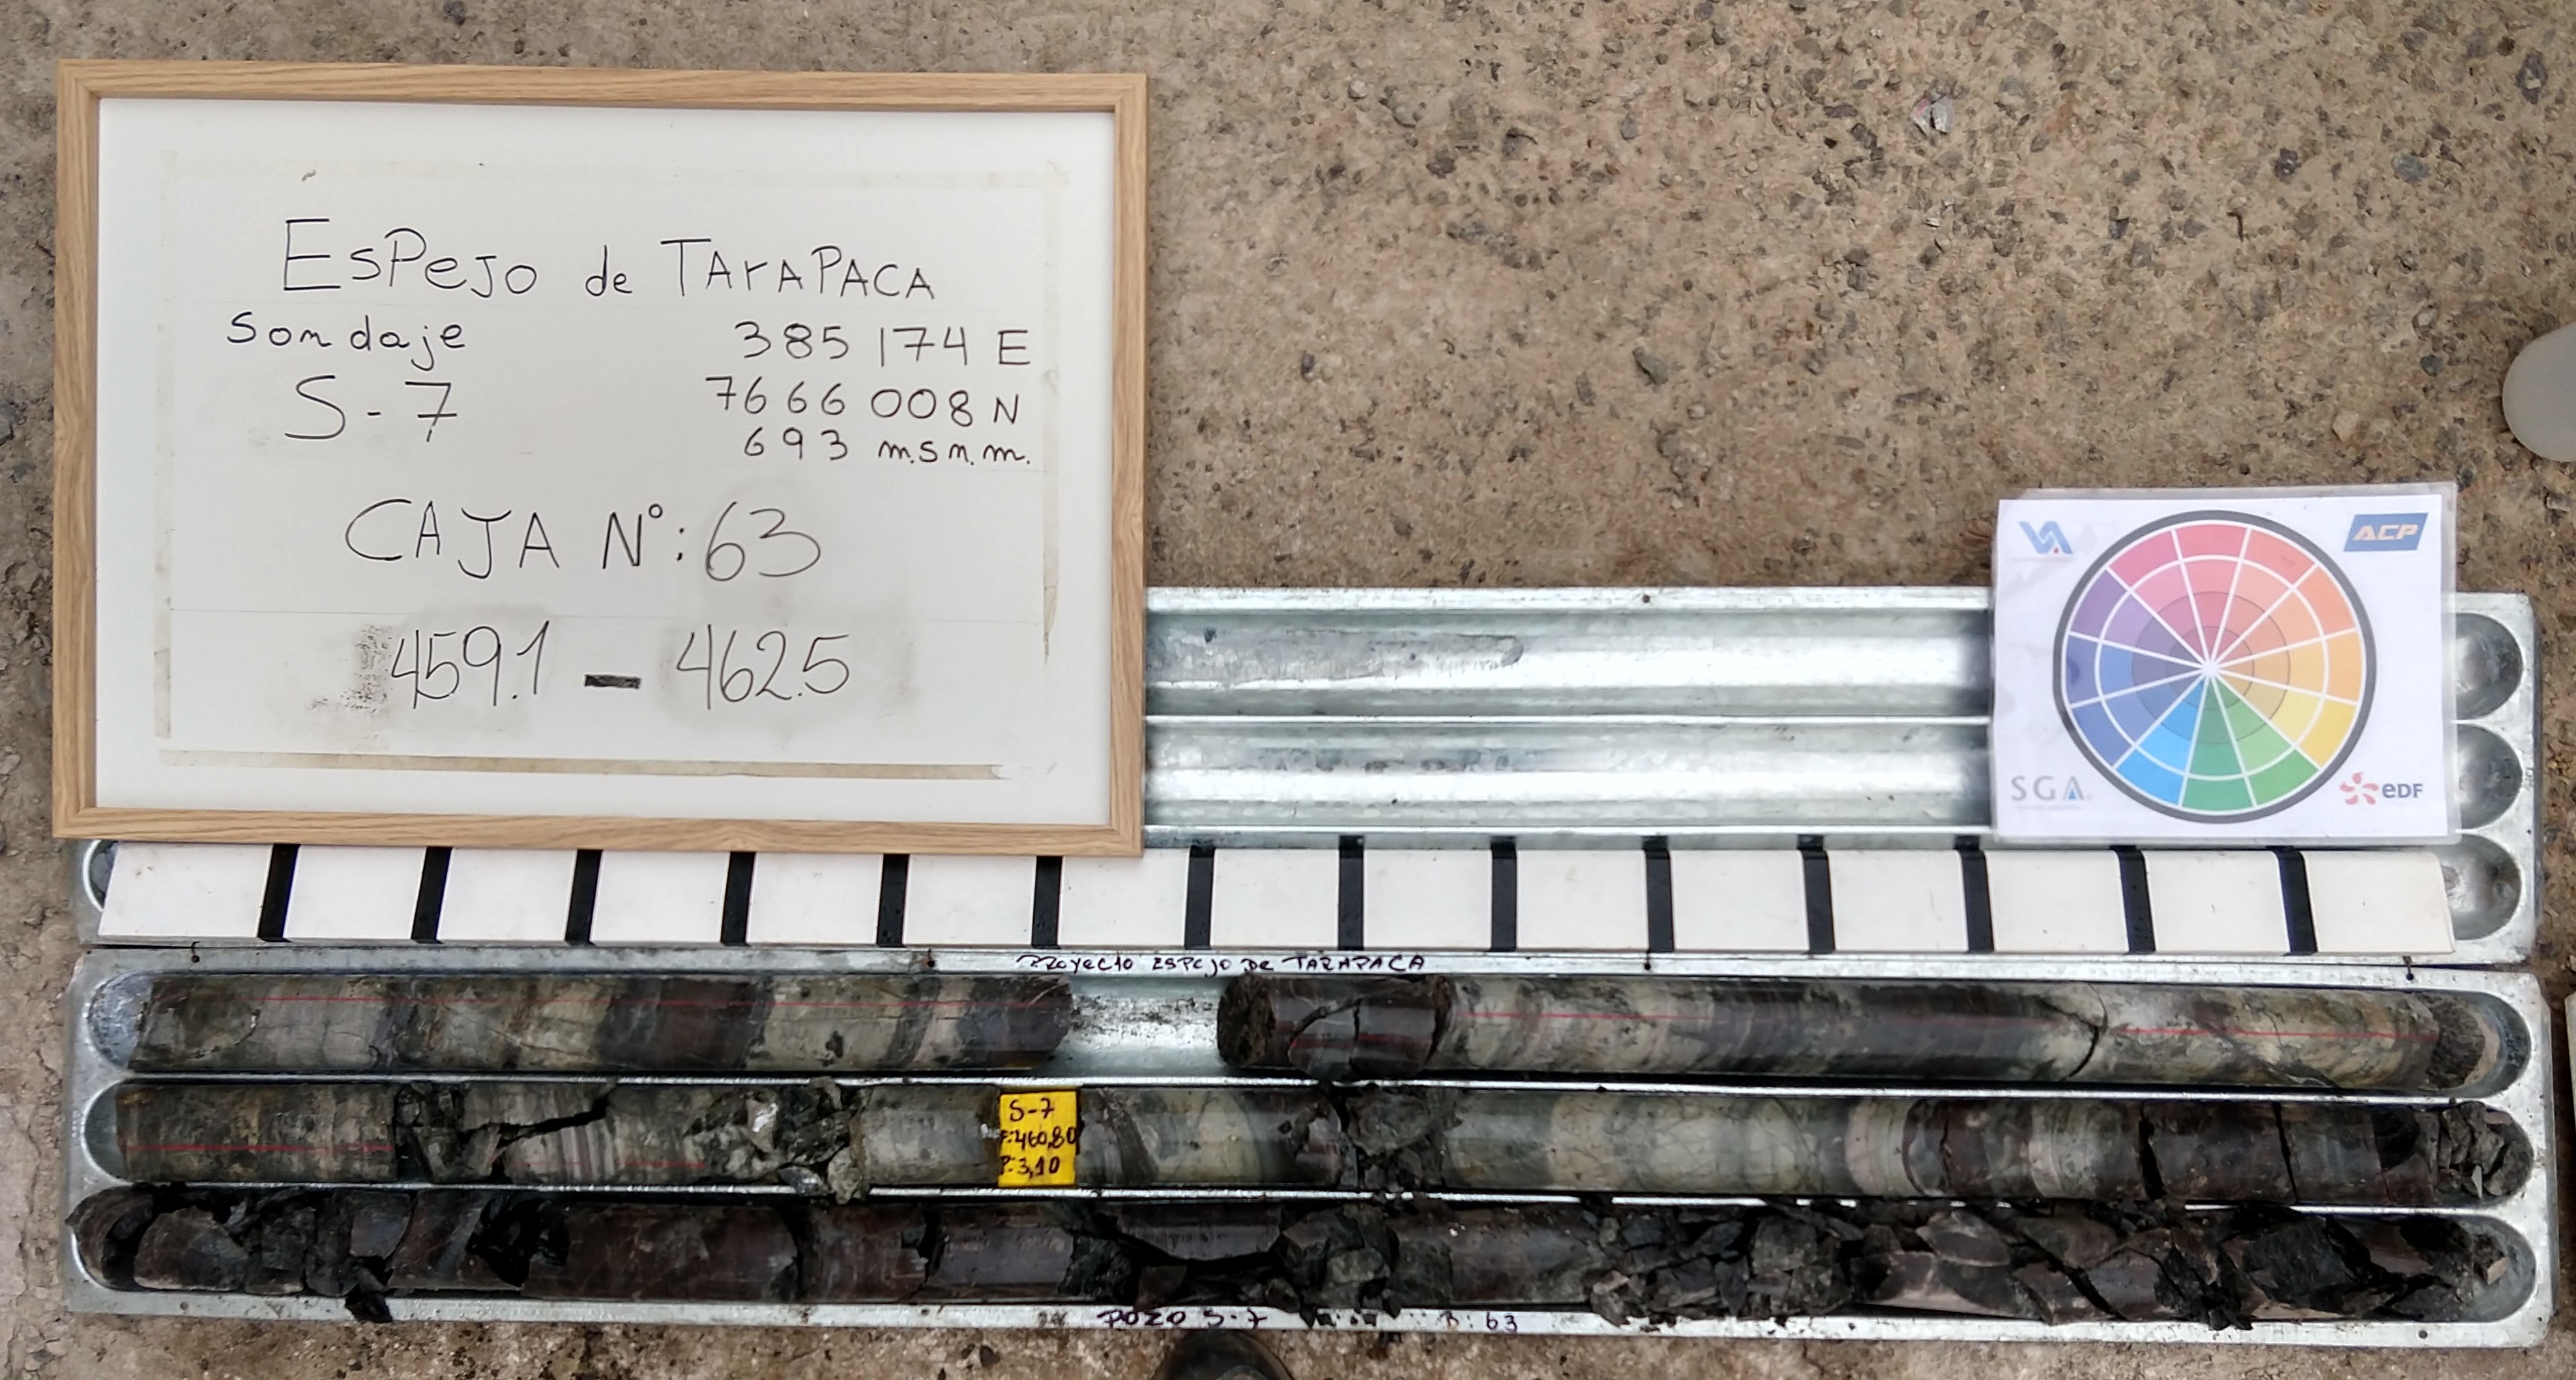 EsPeJo de TArAPACA
Sondaje
385 174 E
S-7
7666 008 N
693 m.s.n.m.
CAJA N°: 63
459.1 - 462.5
VA
ACP
SGA
eDF
PROYECTO ESPEJO DE TARAPACA
S-7
F:460,80
P:3,10
POZO S-7
B: 63